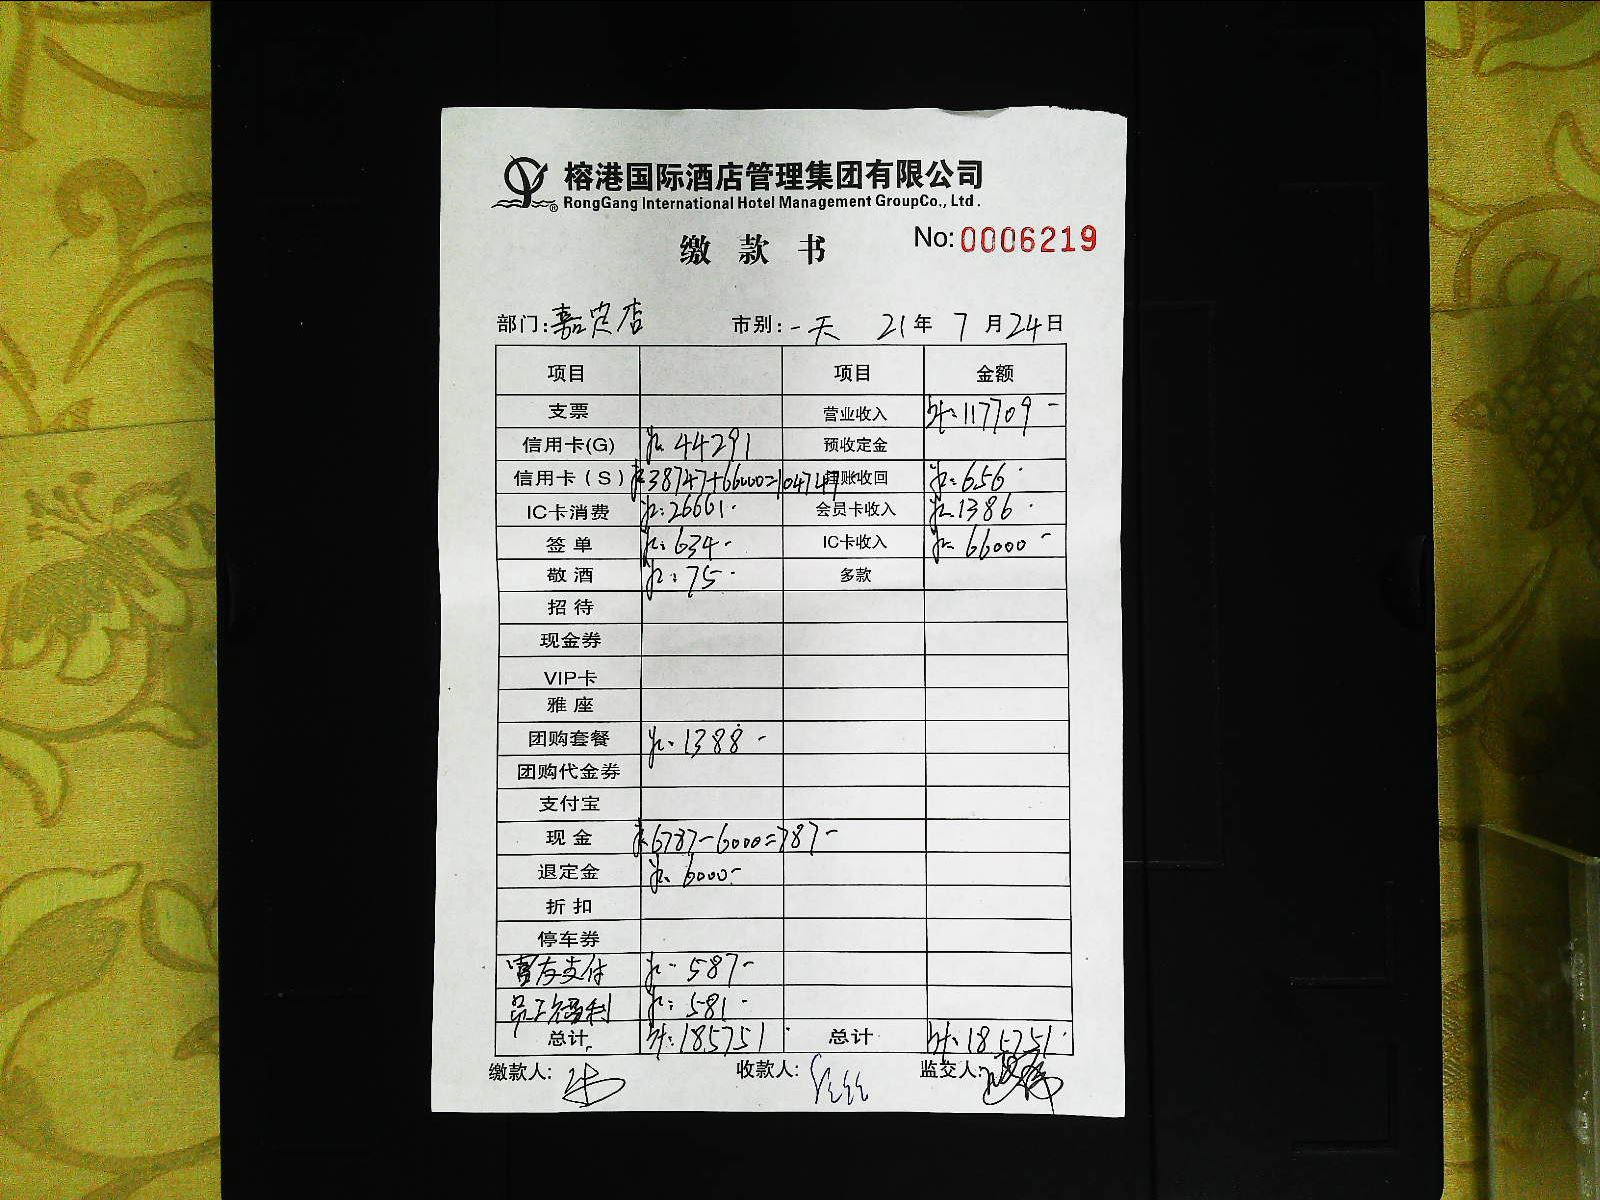 榕港国际酒店管理集团有限公司
RongGang International Hotel Management GroupCo., Ltd.
缴 款 书 No:0006219
部门:嘉定店 市别:一天 21年 7月24日
项目 项目 金额
支票 营业收入 计:117709-
信用卡(G) 计:44291 预收定金
信用卡(S) 计:38747+66000=104747 账收回 计:656·
IC卡消费 计:26661· 会员卡收入 计:1386·
签单 计:634- IC卡收入 计:66000-
敬酒 计:75· 多款
招待
现金券
VIP卡
雅座
团购套餐 计:1388-
团购代金券
支付宝
现金 计:6787-6000=787-
退定金 计:6000-
折扣
停车券
富友支付 计:587-
员工福利 计:581·
总计 计:185751· 总计 计:185751·
缴款人: 收款人: 监交人: